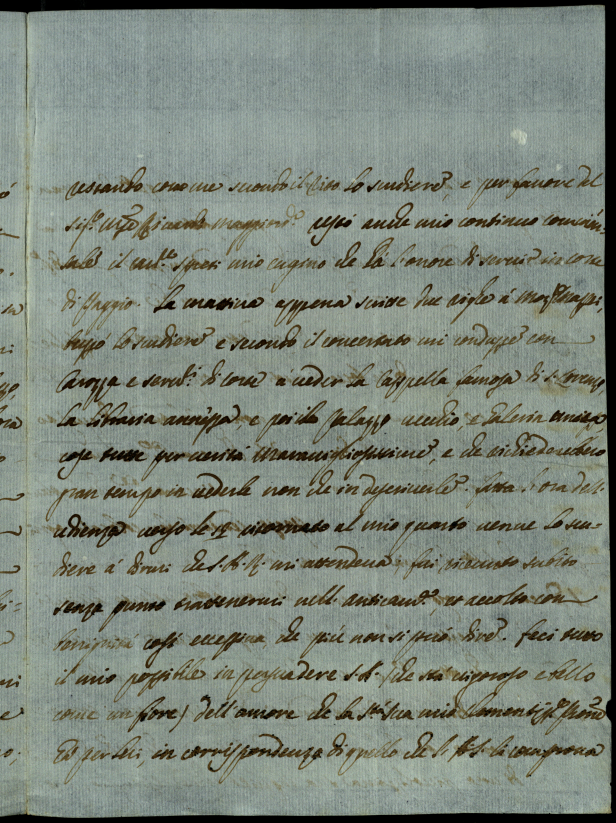 restando come me secondo il sito lo scudiere, e per favore del
Sigr. Maggiord. restò anche mio continuo commen-
sale il mio cugino che hà l'onore di servire in corte
di Paggio. La mattina appena scritte due righe à
lo scudiere e secondo il concertato mi condusse con
Carozza e servit. di corte à veder la Cappella famosa di S. Lorenzo,
la Libraria annessa e poi il Palazzo vecchio, e Galeria
cose tutte per verità maravigliosissime, e che richiederebbero
gran tempo in vederle non che in descriverle. fatta l'ora dell'
udienza verso le ritornato al mio quarto venne lo scu-
diere à dirmi che S. A. R. mi attendeva; fui subito
senza punto trattenermi nell' anticam. et accolto con
benignità così eccessiva che più non si può dire. feci tutto
il mio possibile in persuadere S. A. (che sta vigoroso e bello
come un fiore) dell' amore che la Stà Sua
hà per lei, in corrispondenza di quello che S. A. R. le comprova